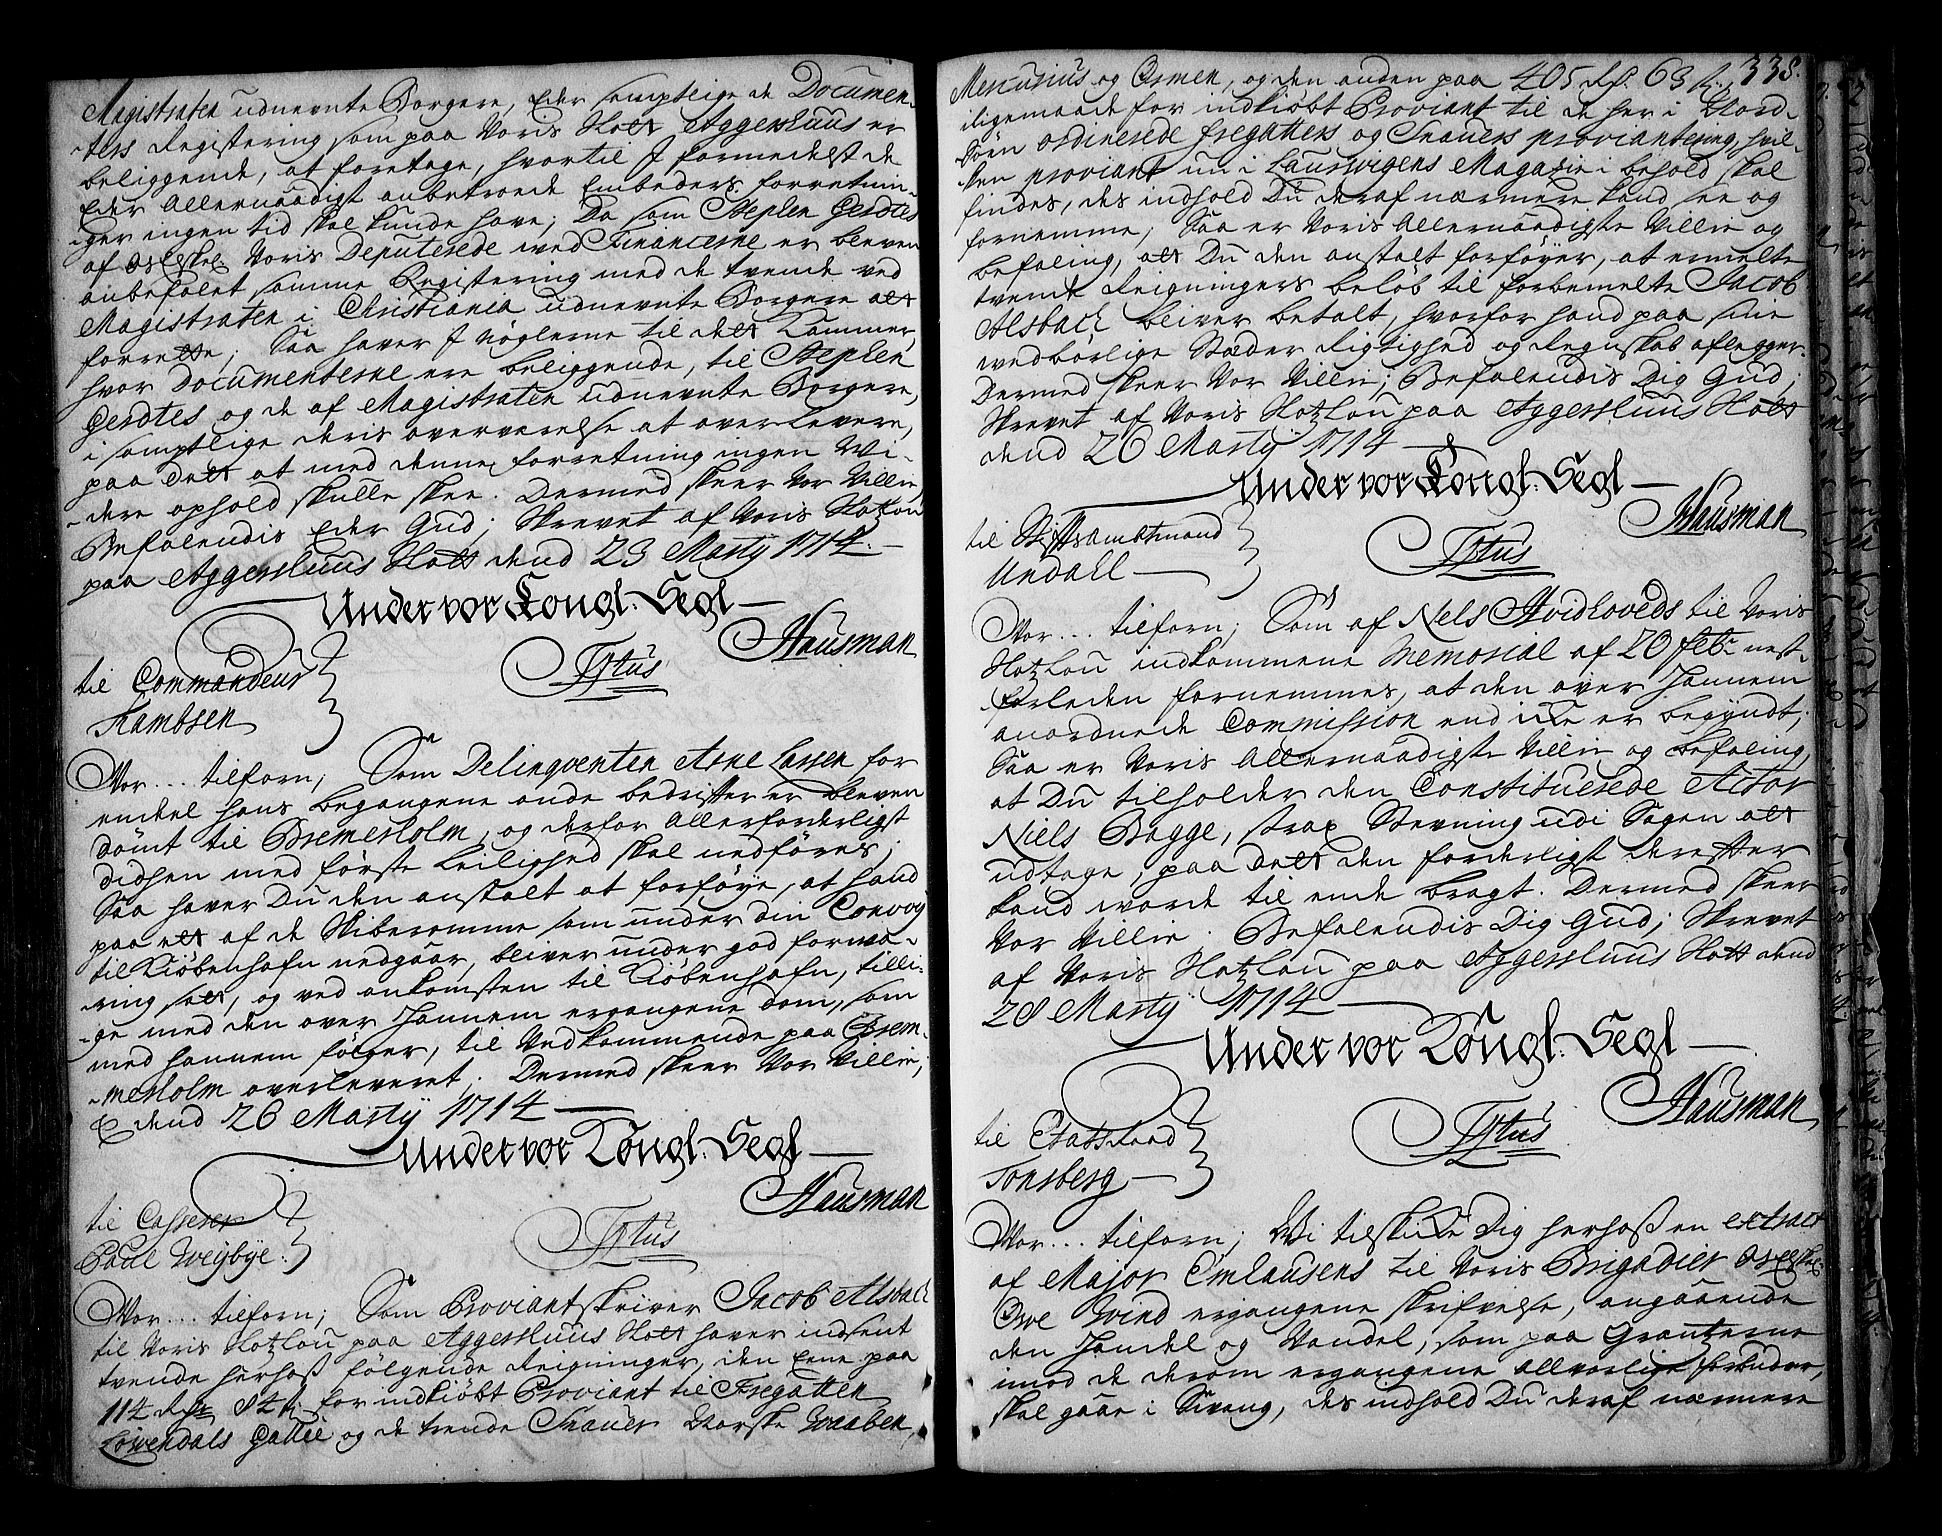 Magistraten udnevnte Borgere, Eder samptlige de Documen-
-ters Registering som paa Voris Slott Aggershuus er
beliggende, at foretage, hvortil I formedelst de
Eder Allernaadigst anbetroede Embeders forretnin-
-ger ingen tid skal kunde have; Da som Stephen Gerdtes
af Voris Deputerede ved Financerne er bleven
anbefalet samme Registering med de tvende ved
Magistraten i Christiania udnevnte Borgere at
forrette; Saa haver I Nøglerne til dett Kammer,
hvor Documenterne ere beliggende, til Stephen
Gerdtes og de af Magistraten udnevnte Borgere,
i samptlige deris overværelse at overlevere,
paa dett at med denne forretning ingen Vi-
-dere ophold skulle skee. Dermed skeer Vor Villie,
Befalendis Eder Gud; Skrevet af Voris Slotzlou
paa Aggershuus Slott dend 23 Marty 1714.
Under vor Kongl: Segl
Hausman
Tytus
til Commandeur
Kambsen
Vor... tilforn; Som Delinqventen Arne Larsen for
endeel hans begangene onde bedrifter er bleven
dömt til Bremerholm, og derfor Allerforderligst
didhen med første Leilighed skal nedføres;
Saa haver Du den anstalt at forføye, at hand
paa ett af de Skiberomme som under din Convoy
til Kiøbenhafn nedgaar, bliver under god forva-
-ring satt, og ved ankomsten til Kiøbenhafn, tilli-
-ge med den over hannem ergangene dom, som
med hannem følger, til Vedkommende paa Brem-
-merholm overleveret. Dermed skeer Vor Villie,
dend 26 Marty 1714
Under vor Kongl: Segl
Hausman
Tytus
til Casserer
Poul Weybye.
Vor... tilforn; Som Proviantskriver Jacob Alsbach
til Voris Slotzlou paa Aggershuus Slott haver indsent
tvende herhoß følgende Reigninger, den Eene paa
114 Rdr 84 s. for indkiøbt Proviant til Fregatten
Løvendals Gallie og de tvende Snauer Norske Vaaben,
338.
Mercurius og Ormen, og den anden paa 405 Rd. 63 s.,
iligemaade for indkiøbt Proviant til de her i Nord-
Söen ordinerede fregatters og Snauers proviantering, hvil-
-ken proviant nu i Laurvigens Magazin i behold skal
findes, des indhold Du deraf nærmere kand see og
fornemme; Saa er Voris Allernaadigste Villie og
befaling, att Du den anstalt forføyer, at ermelte
tvende Reigningers beløb til forbemelte Jacob
Alsbach bliver betalt, hvorfor hand paa sine
vedbørlige Stæder Rigtighed og Regnskab aflegger.
Dermed skeer Vor Villie; Befalendis Dig Gud;
Skrevet af Voris Slotzlou paa Aggershuus Slott
dend 26 Marty 1714
Under vor Kongl: Segl
Hausman
Tytus
til Stiftsambtmand
Undall
Vor... tilforn; Som af Niels Hvidhoveds til Voris
Slotzlou indkommene Memorial af 20 feb: nest-
forleden fornemmes, at den over hannem
anordnede Commission end icke er begyndt;
Saa er Voris Allernaadigste Villie og befaling,
at Du tilholder den Constituerede Actor
Niels Bagge, strax Stevning udi Sagen at
udtage, paa dett den forderligst derefter
kand vorde til ende bragt. Dermed skeer
Vor Villie. Befalendis Dig Gud; Skrevet
af Voris Slotzlou paa Aggershuus Slott dend
28 Marty 1714
Under vor Kongl: Segl
Hausman
Tytus
til Etatsraad
Tonsberg
Vor... tilforn; Wi tilskicke Dig herhoß en extract
af Major Emhausens til Voris Brigadier
Ove Wind ergangene skrifvelse, angaaende
den Handel og Vandel, som paa Grantzerne
imod de derom ergangene allvorlige forbuder,
skal gaae i Svang, des indhold Du deraf nærmere